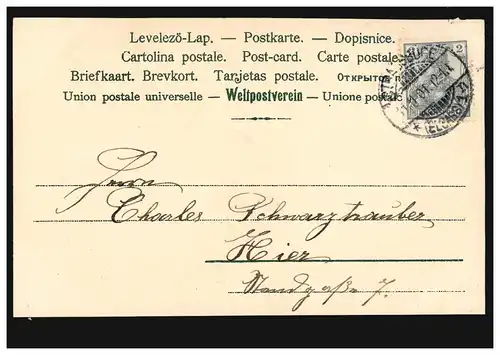 Levelezö-Lap. — Postkarte. — Dopisnice.
Cartolina postale. Post-card. Carte postale.
Briefkaart. Brevkort. Tarjetas postale. ОТКРЫТОЕ
Union postale universelle — Weltpostverein — Unione postale
2
Herrn
Charles Schwarztrauber,
Hier
7.